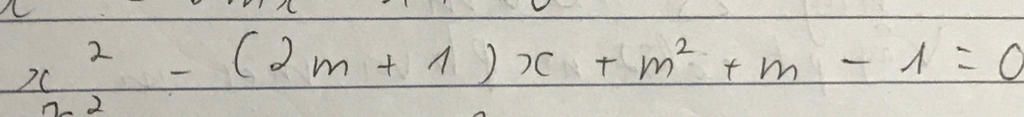 x² - (2m + 1)x + m² + m - 1 = 0